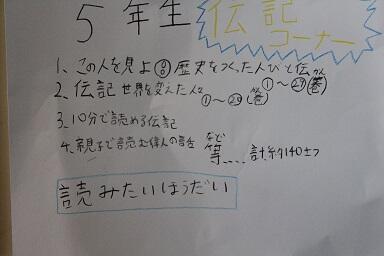 5年生
伝記
コーナー
1、この人を見よ⑧歴史をつくった人びと伝
①〜㉗(巻)
2、伝記 世界を変えた人々
①〜㉔(巻)
3、10分で読める伝記
4、親子で読む偉人の話
など
等....計、約140さつ
読みたいほうだい